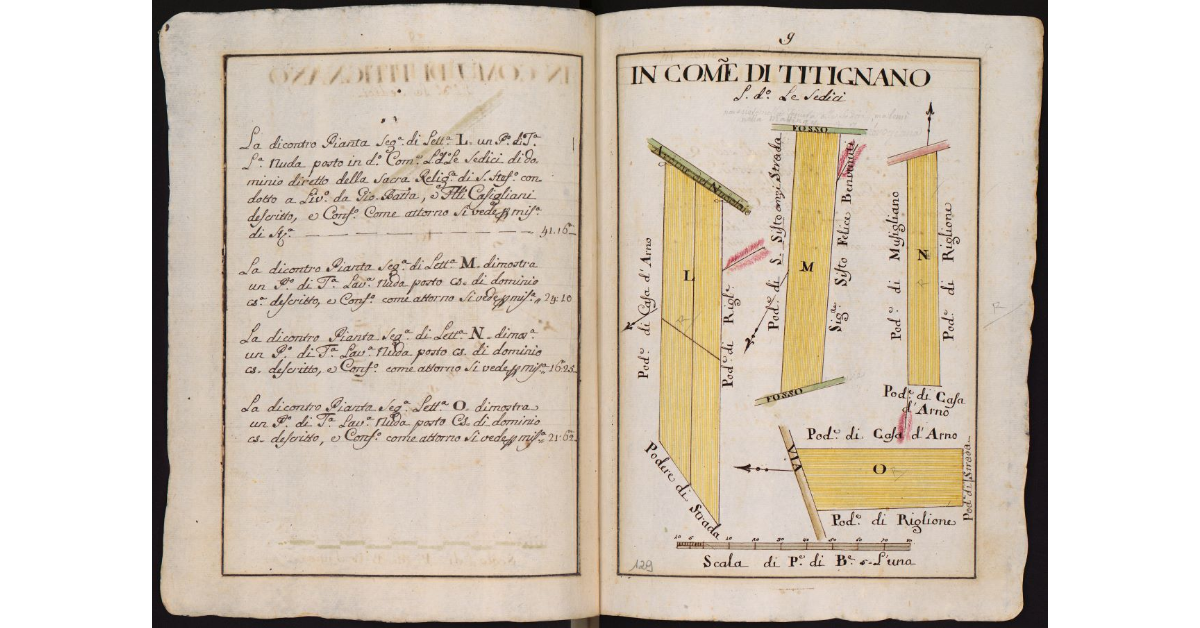 La dicontro Pianta Seg.ª di Lett.ª L. un P.º di T.ª
L.ª Nuda posto in d.º Com.e L.d.º Le Sedici di do
minio diretto della Sacra Relig.ª di S. Stef.º con
dotto a Liv.º da Gio Batta, e Flli Casigliani
descritto, e Conf.º Come attorno Si vede misª
di St.ª 41.16
La dicontro Pianta Seg.ª di Lett.ª M. dimostra
un P.º di T.ª Lav.ª Nuda posto cs. di dominio
cs.º descritto, e Conf.º come attorno Si vede misª 24.10
La dicontro Pianta Seg.ª di Lett.ª N. dimos.ª
un P.º di T.ª Lav.ª Nuda posto cs. di dominio
cs. descritto, e Conf.º come attorno Si vede misª 16.25
La dicontro Pianta Seg.ª Lett.ª O. dimostra
un P.º di T.ª Lav.ª Nuda posto Cs. di dominio
cs. descritto, e Conf.º come attorno Si vede misª 21.62
9
IN COM̃E DI TITIGNANO
L. d.º Le Sedici
FOSSO
L
Pod.e di Casa d'Arno
Pod.e di Rigl.e
Podere di Strada
M
Pod.e di S. Sisto oggi Strada
Sig.re Sisto Felice Benvenuti
FOSSO
N
Pod.e di Musigliano
Pod.e di Riglione
Pod.e di Casa
d'Arno
Pod.e di Casa d'Arno
VIA
O
Pod.e di Strada
Pod.e di Riglione
10 5 10 20 30 40 50 60 70 80
Scala di P.e di B.ª 5 L'una
129